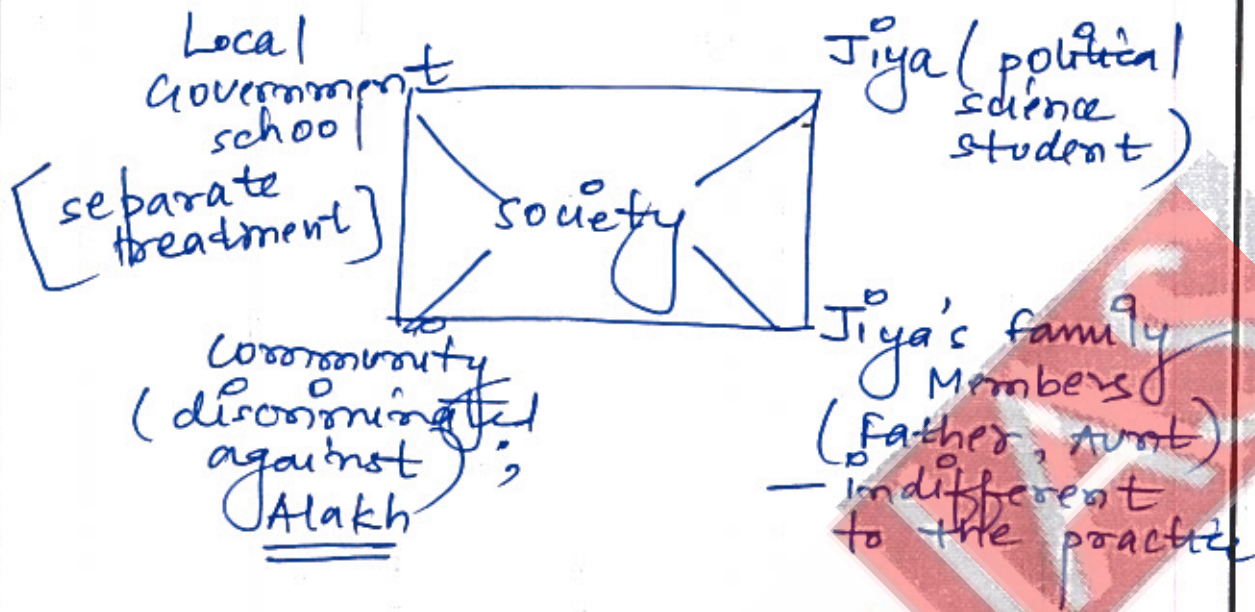 Local
Government
school
[separate
treatment]
Jiya (political
science
student)
society
community
(discriminated
against);
Alakh
Jiya's family
Members
(Father, Aunt)
— indifferent
to the practice